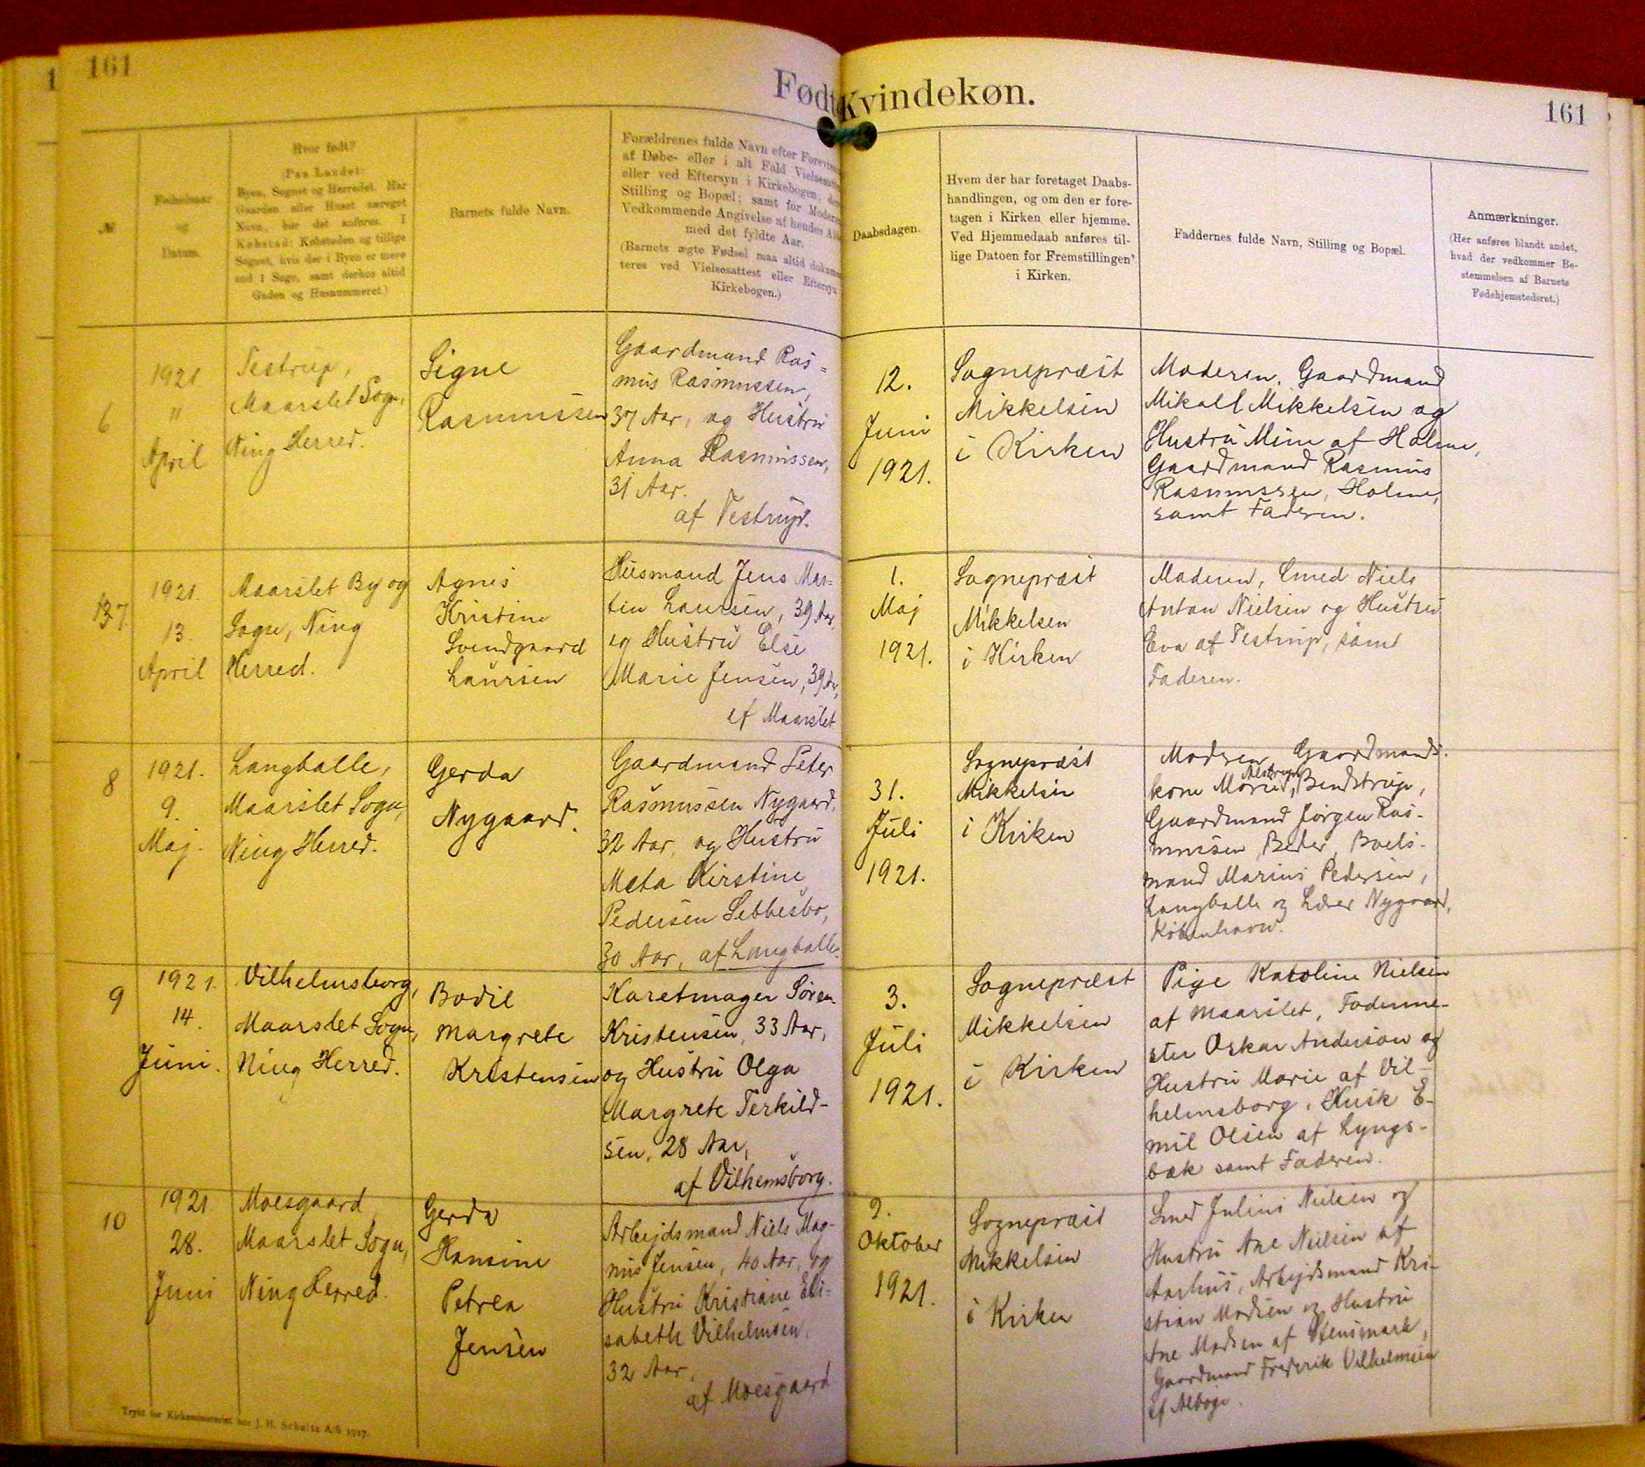 161
Født Kvindekøn.
161
№
Fødselsaar
og
Datum.
Hvor født?
(Paa Landet:
Byen, Sognet og Herredet. Har
Gaarden eller Huset særeget
Navn, bør det anføres. I
Købstad: Købstaden og tillige
Sognet, hvis der i Byen er mere
end 1 Sogn, samt derhos altid
Gaden og Husnummeret.)
Barnets fulde Navn.
Forældrenes fulde Navn efter
af Døbe- eller i alt Fald
eller ved Eftersyn i Kirkebogen;
Stilling og Bopæl; samt for
Vedkommende Angivelse af hendes
med det fyldte Aar.
(Barnets ægte Fødsel maa altid
teres ved Vielsesattest eller Eftersyn
Kirkebogen.)
Daabsdagen.
Hvem der har foretaget Daabs-
handlingen, og om den er fore-
tagen i Kirken eller hjemme.
Ved Hjemmedaab anføres til-
lige Datoen for Fremstillingen
i Kirken.
Faddernes fulde Navn, Stilling og Bopæl.
Anmærkninger.
(Her anføres blandt andet,
hvad der vedkommer Be-
stemmelsen af Barnets
Fødehjemstedsret.)
6
1921.
"
April
Testrup,
Maarslet Sogn,
Ning Herred.
Signe
Rasmussen
Gaardmand Ras=
mus Rasmussen,
37 Aar, og Hustru
Anna Rasmussen,
31 Aar.
af Testrup.
12.
Juni
1921.
Sognepræst
Mikkelsen
i Kirken
Moderen, Gaardmand
Mikall Mikkelsen og
Hustru Mine af Holme,
Gaardmand Rasmus
Rasmussen, Holme,
samt Faderen.
7
1921.
13.
April
Maarslet By og
Sogn, Ning
Herred.
Agnes
Kristine
Svendgaard
Laursen
Husmand Jens Mar-
tin Laursen, 39 Aar,
og Hustru Else
Marie Jensen, 39 Aar,
af Maarslet
1.
Maj
1921.
Sognepræst
Mikkelsen
i Kirken
Moderen, Smed Niels
Anton Nielsen og Hustru
Eva af Testrup, samt
Faderen.
8
1921.
9.
Maj.
Langballe,
Maarslet Sogn,
Ning Herred.
Gerda
Nygaard.
Gaardmand Peter
Rasmussen Nygaard,
32 Aar, og Hustru
Meta Kirstine
Pedersen Sebbesbo,
30 Aar, af Langballe.
31.
Juli
1921.
Sognepræst
Mikkelsen
i Kirken
Moderen, Gaardmands-
kone Bendstrup,
Gaardmand Jørgen Ras-
mussen, Beder, Boels-
mand Marius Pedersen,
Langballe og Lærer Nygaard,
København.
9
1921.
14.
Juni.
Vilhelmsborg,
Maarslet Sogn,
Ning Herred.
Bodil
Margrete
Kristensen
Karetmager Søren
Kristensen, 33 Aar,
og Hustru Olga
Margrete Terkild-
sen, 28 Aar,
af Vilhemsborg.
3.
Juli
1921.
Sognepræst
Mikkelsen
i Kirken
Pige Karoline Nielsen
af Maarslet, Foderme-
ster Oskar Anderson og
Hustru Marie af Vil-
helmsborg, Kusk E-
mil Olsen af Lyngs-
bæk samt Faderen.
10
1921
28.
Juni
Moesgaard
Maarslet Sogn,
Ning Herred.
Gerda
Hansine
Petrea
Jensen
Arbejdsmand Niels Mag-
nus Jensen, 40 Aar, og
Hustru Kristiane Eli-
sabeth Vilhelmsen,
32 Aar,
af Moesgaard
9.
Oktober
1921.
Sognepræst
Mikkelsen
i Kirken
Smed Julius Nielsen og
Hustru Ane Nielsen af
Aarhus, Arbejdsmand Kri-
stian Madsen og Hustru
Ane Madsen af Stensmark,
Gaardmand Frederik Vilhelmsen
af Albøge.
Trykt for Kirkeministeriet hos J. H. Schultz A/S 1917.